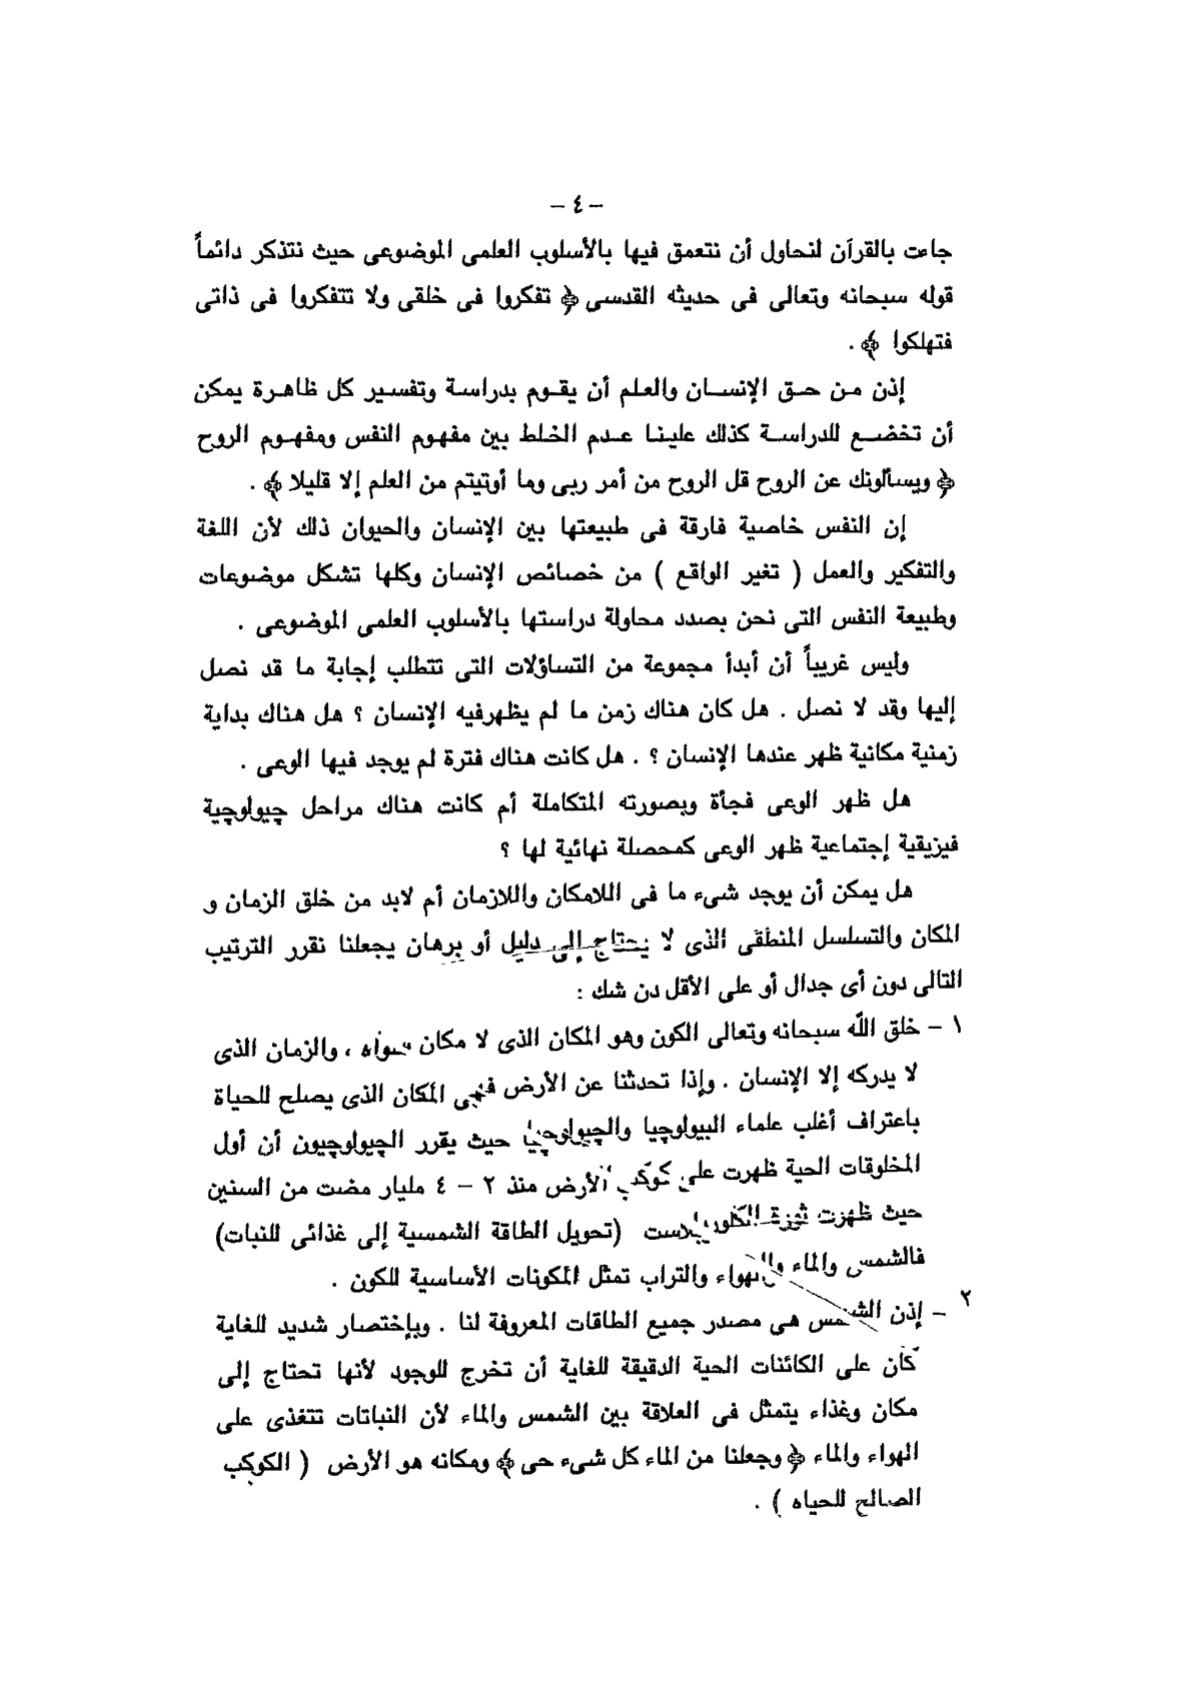 – ٤ –
جاءت بالقرآن لنحاول أن نتعمق فيها بالأسلوب العلمى الموضوعى حيث نتذكر دائماً
قوله سبحانه وتعالى فى حديثه القدسى ﴿ تفكروا فى خلقى ولا تتفكروا فى ذاتى
فتهلكوا ﴾ .
إذن من حق الإنسان والعلم أن يقوم بدراسة وتفسير كل ظاهرة يمكن
أن تخضع للدراسة كذلك علينا عدم الخلط بين مفهوم النفس ومفهوم الروح
﴿ ويسألونك عن الروح قل الروح من أمر ربى وما أوتيتم من العلم إلا قليلا ﴾ .
إن النفس خاصية فارقة فى طبيعتها بين الإنسان والحيوان ذلك لأن اللغة
والتفكير والعمل ( تغير الواقع ) من خصائص الإنسان وكلها تشكل موضوعات
وطبيعة النفس التى نحن بصدد محاولة دراستها بالأسلوب العلمى الموضوعى .
وليس غريباً أن أبدأ مجموعة من التساؤلات التى تتطلب إجابة ما قد نصل
إليها وقد لا نصل . هل كان هناك زمن ما لم يظهرفيه الإنسان ؟ هل هناك بداية
زمنية مكانية ظهر عندها الإنسان ؟ . هل كانت هناك فترة لم يوجد فيها الوعى .
هل ظهر الوعى فجأة وبصورته المتكاملة أم كانت هناك مراحل چيولوچية
فيزيقية إجتماعية ظهر الوعى كمحصلة نهائية لها ؟
هل يمكن أن يوجد شىء ما فى اللامكان واللازمان أم لابد من خلق الزمان و
المكان والتسلسل المنطقى الذى لا يحتاج إلى دليل أو برهان يجعلنا نقرر الترتيب
التالى دون أى جدال أو على الأقل دن شك :
١ – خلق الله سبحانه وتعالى الكون وهو المكان الذى لا مكان سواه ، والزمان الذى
لا يدركه إلا الإنسان . وإذا تحدثنا عن الأرض فهى المكان الذى يصلح للحياة
باعتراف أغلب علماء البيولوچيا والچيولوچيا حيث يقرر الچيولوچيون أن أول
المخلوقات الحية ظهرت على كوكب الأرض منذ ٢ – ٤ مليار مضت من السنين
حيث ظهرت ثورة الكلوروبلاست (تحويل الطاقة الشمسية إلى غذائى للنبات)
فالشمس والماء والهواء والتراب تمثل المكونات الأساسية للكون .
٢ – إذن الشمس هى مصدر جميع الطاقات المعروفة لنا . وبإختصار شديد للغاية
كان على الكائنات الحية الدقيقة للغاية أن تخرج للوجود لأنها تحتاج إلى
مكان وغذاء يتمثل فى العلاقة بين الشمس والماء لأن النباتات تتغذى على
الهواء والماء ﴿ وجعلنا من الماء كل شىء حى ﴾ ومكانه هو الأرض ( الكوكب
الصالح للحياه ) .